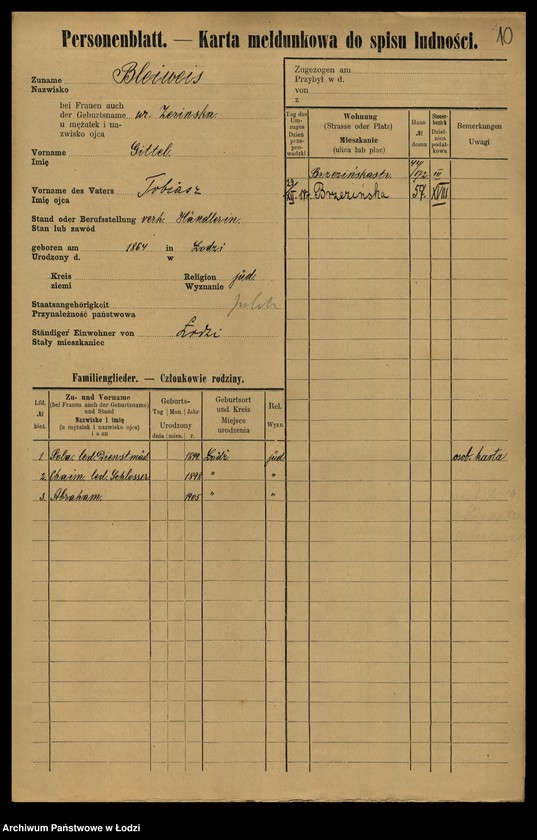 10
Personenblatt. — Karta meldunkowa do spisu ludności.
Zuname Bleiweis
Nazwisko
bei Frauen auch
der Geburtsname
u mężatek i na-
zwisko ojca
ur. Zerinska.
Vorname Gittel.
Imię
Vorname des Vaters Tobiasz
Imię ojca
Stand oder Berufsstellung verh. Händlerin.
Stan lub zawód
geboren am 1864 in Lodzi
Urodzony d. w
Kreis Religion jüd.
ziemi Wyznanie
Staatsangehörigkeit
Przynależność państwowa
Ständiger Einwohner von Łodzi
Stały mieszkaniec
Zugezogen am
Przybył w d.
von
z
Tag des Um-zuges Dzień prze-prowadzki
Wohnung
(Strasse oder Platz)
Mieszkanie
(ulica lub plac)
Haus-№ domu
Steuer-bezirk Dziel-nica podat-kowa
Bemerkungen
Uwagi
Brzezińskastr. 44/172 III
Brzezińska 57. XVIII
Familienglieder. — Członkowie rodziny.
Lfd. №
Zu- und Vorname
(bei Frauen auch der Geburtsname)
und Stand
Nazwisko i imię
(u mężatek i nazwisko ojca)
i stan
Geburts-
Tag Mon. Jahr
Urodzony
dnia mies. r.
Geburtsort
und Kreis
Miejsce
urodzenia
Rel.
Wyzn.
1. led. Dienstmäd. Łódź jüd. osob. karta
2. Chaim led. Schlosser 1898 " "
3. Abraham. 1905 " "
Archiwum Państwowe w Łodzi